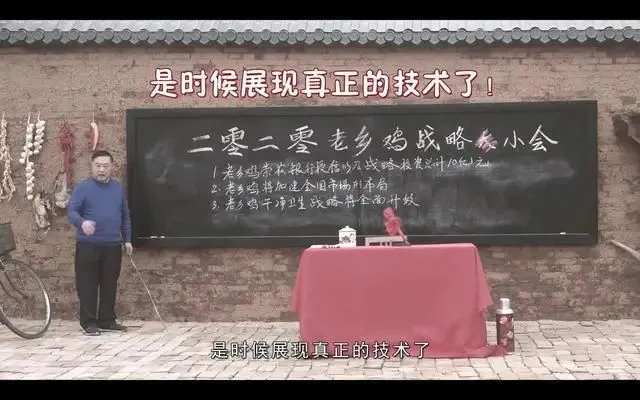 是时候展现真正的技术了!
二零二零老乡鸡战略大小会
1.老乡鸡荣获银行授信以及战略投资总计10亿元
2.老乡鸡将加速全国市场的布局
3.老乡鸡干净卫生战略将全面升级
是时候展现真正的技术了